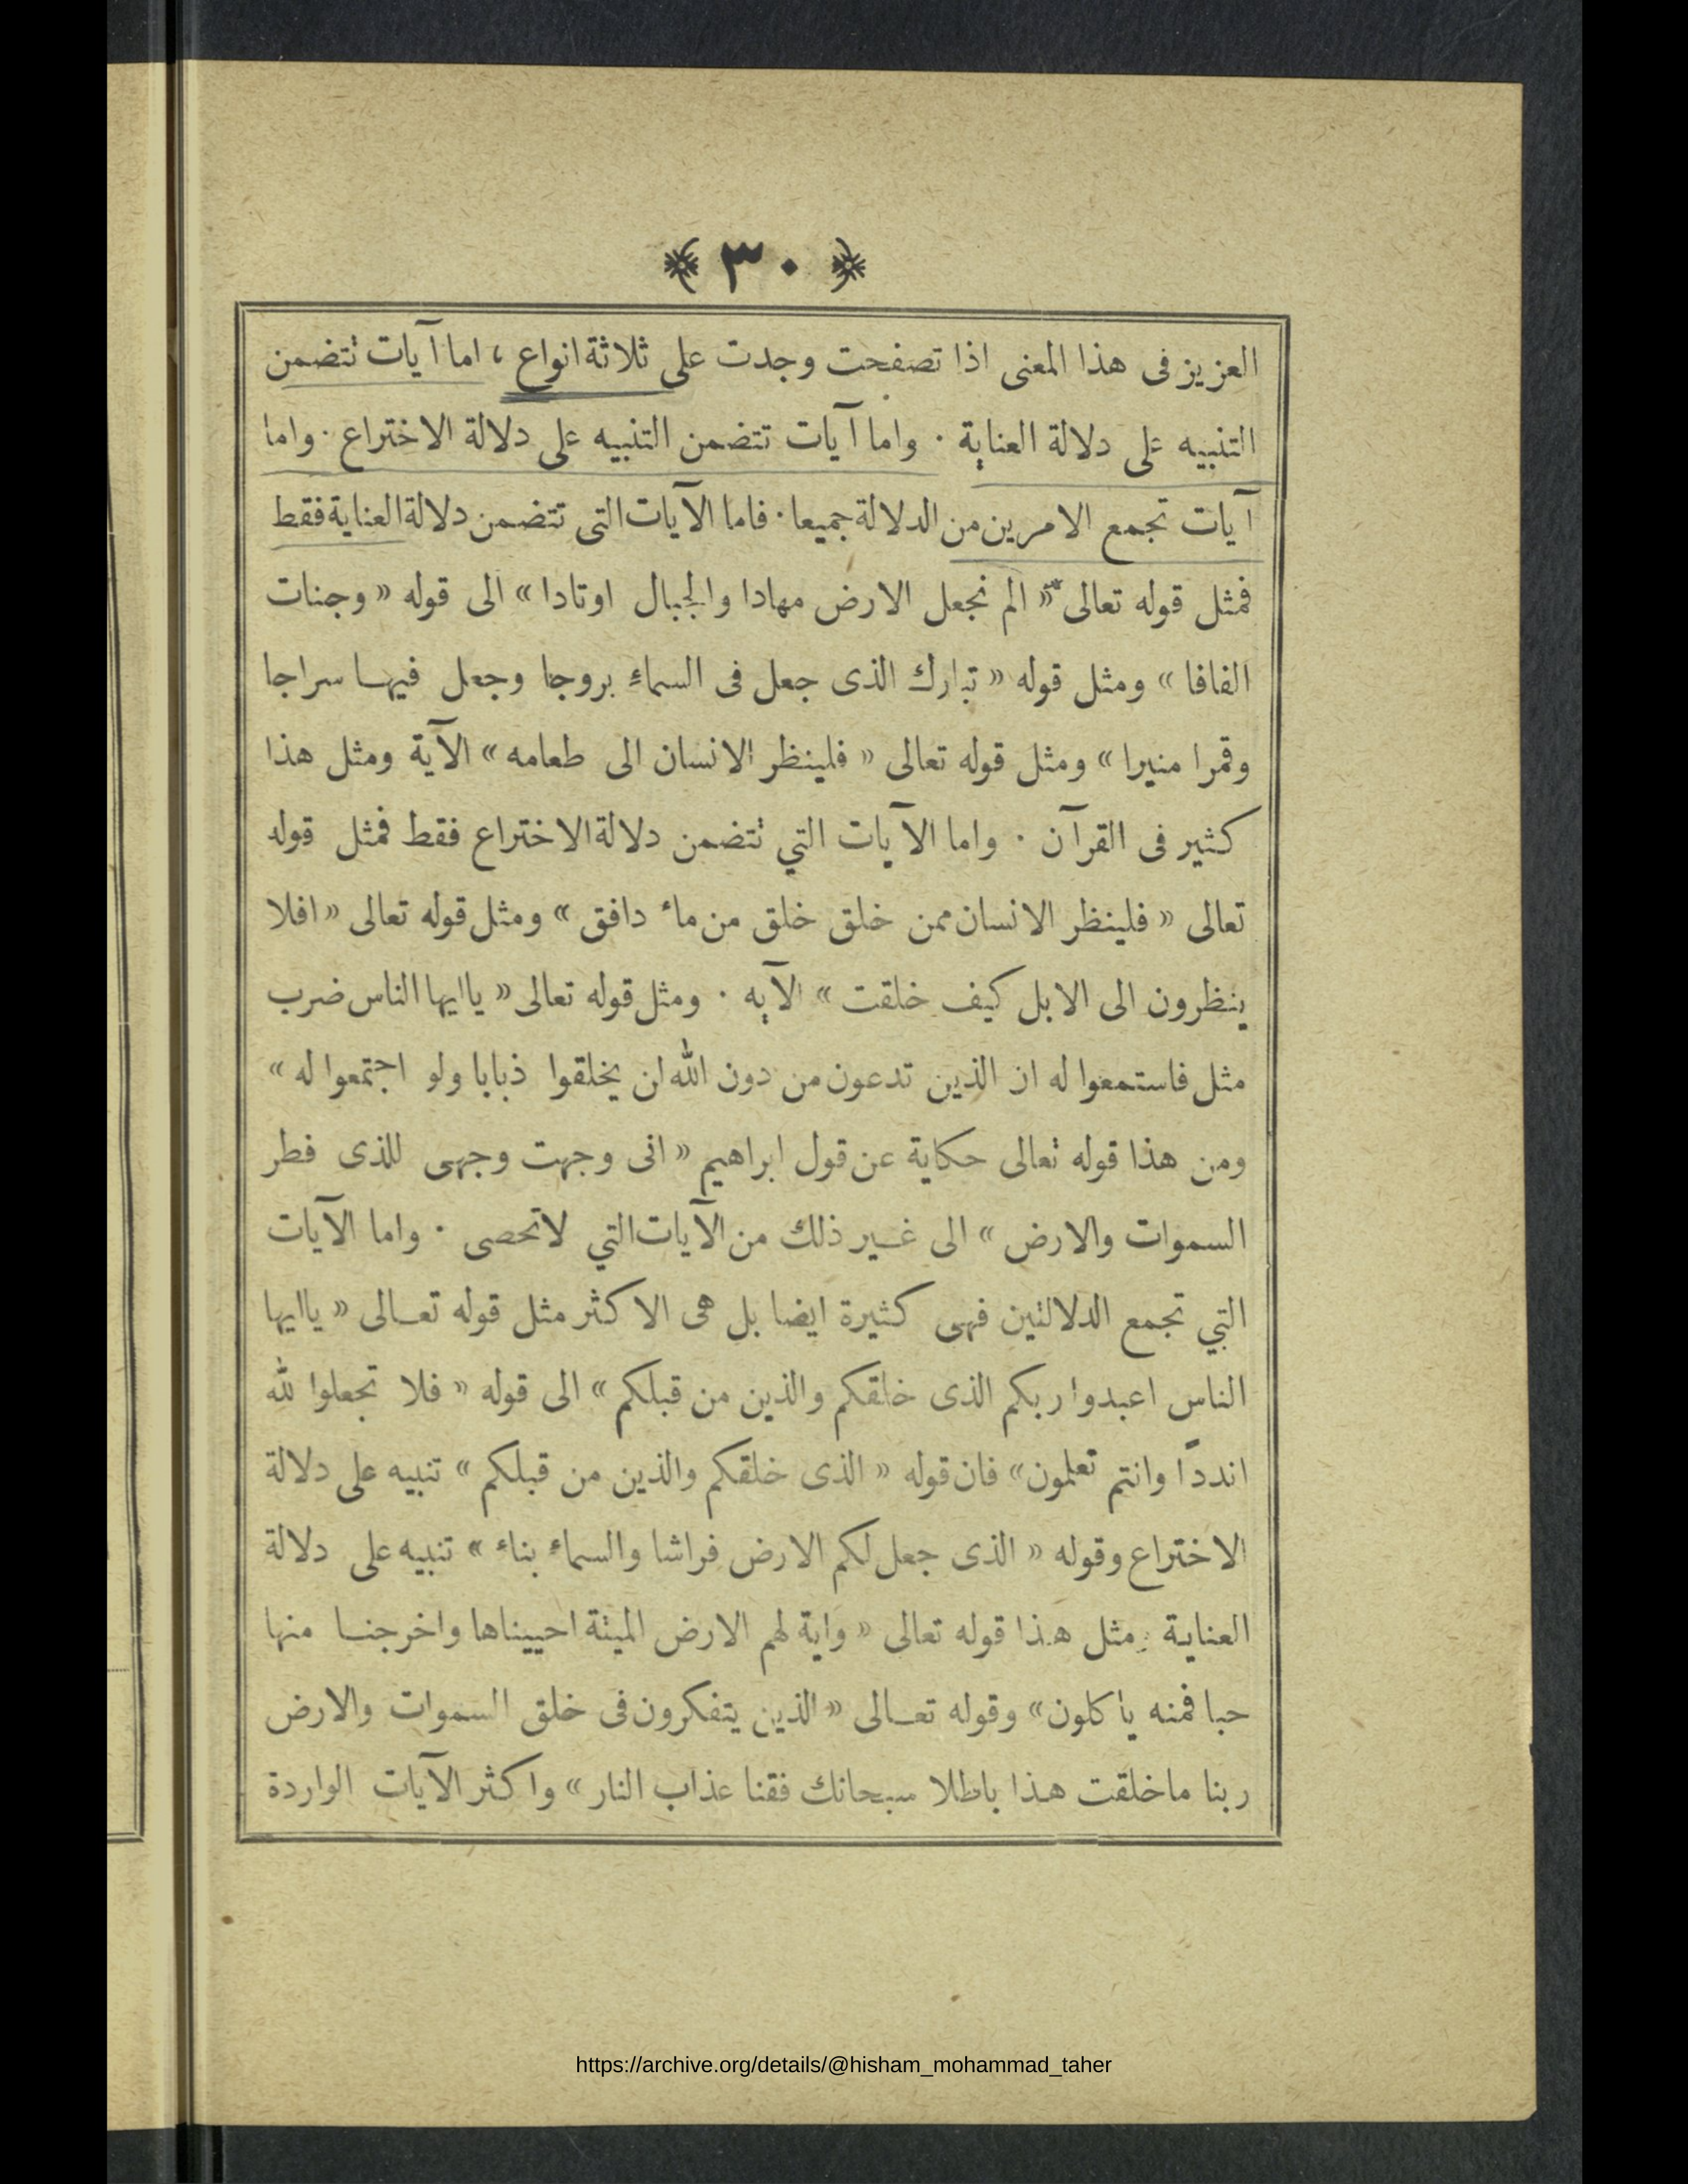 ﴿ ٣٠ ﴾
العزيز فى هذا المعنى اذا تصفحت وجدت على ثلاثة انواع ، اما آيات تتضمن
التنبيه على دلالة العناية . واما آيات تتضمن التنبيه على دلالة الاختراع . واما
آيات تجمع الامرين من الدلالة جميعا . فاما الآيات التى تتضمن دلالة العناية فقط
فمثل قوله تعالى « الم نجعل الارض مهادا والجبال اوتادا » الى قوله « وجنات
الفافا » ومثل قوله « تبارك الذى جعل فى السماء بروجا وجعل فيهـا سراجا
وقمرا منيرا » ومثل قوله تعالى « فلينظر الانسان الى طعامه » الآية ومثل هذا
كثير فى القرآن . واما الآيات التي تتضمن دلالة الاختراع فقط فمثل قوله
تعالى « فلينظر الانسان ممن خلق خلق من ماء دافق » ومثل قوله تعالى « افلا
ينظرون الى الابل كيف خلقت » الآيه . ومثل قوله تعالى « ياايها الناس ضرب
مثل فاستمعوا له ان الذين تدعون من دون الله لن يخلقوا ذبابا ولو اجتمعوا له »
ومن هذا قوله تعالى حكاية عن قول ابراهيم « انى وجهت وجهى للذى فطر
السموات والارض » الى غـير ذلك من الآيات التي لاتحصى . واما الآيات
التي تجمع الدلالتين فهى كثيرة ايضا بل هى الاكثر مثل قوله تعـالى « ياايها
الناس اعبدوا ربكم الذى خلقكم والذين من قبلكم » الى قوله « فلا تجعلوا لله
اندداً وانتم تعلمون » فان قوله « الذى خلقكم والذين من قبلكم » تنبيه على دلالة
الاختراع وقوله « الذى جعل لكم الارض فراشا والسماء بناء » تنبيه على دلالة
العناية . مثل هذا قوله تعالى « واية لهم الارض الميتة احييناها واخرجنـا منها
حبا فمنه ياكلون » وقوله تعـالى « الذين يتفكرون فى خلق السموات والارض
ربنا ماخلقت هذا باطلا سبحانك فقنا عذاب النار » واكثر الآيات الواردة
https://archive.org/details/@hisham_mohammad_taher